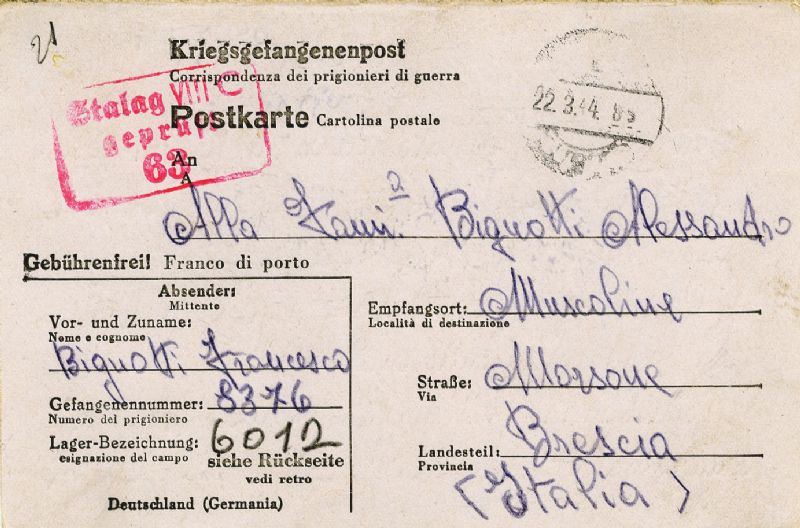 21
Kriegsgefangenenpost
Corrispondenza dei prigionieri di guerra
Stalag VIII C
geprüft
63
Postkarte Cartolina postale
22.3.44
An
A
Alla Fami.ª Bignotti Alessandro
Gebührenfrei! Franco di porto
Absender:
Mittente
Vor- und Zuname:
Nome e cognome
Bignotti Francesco
Gefangenennummer: 8376
Numero del prigioniero
Lager-Bezeichnung: 6012
esignazione del campo
siehe Rückseite
vedi retro
Deutschland (Germania)
Empfangsort: Muscoline
Località di destinazione
Straße: Morsone
Via
Landesteil: Brescia
Provincia
(Italia)